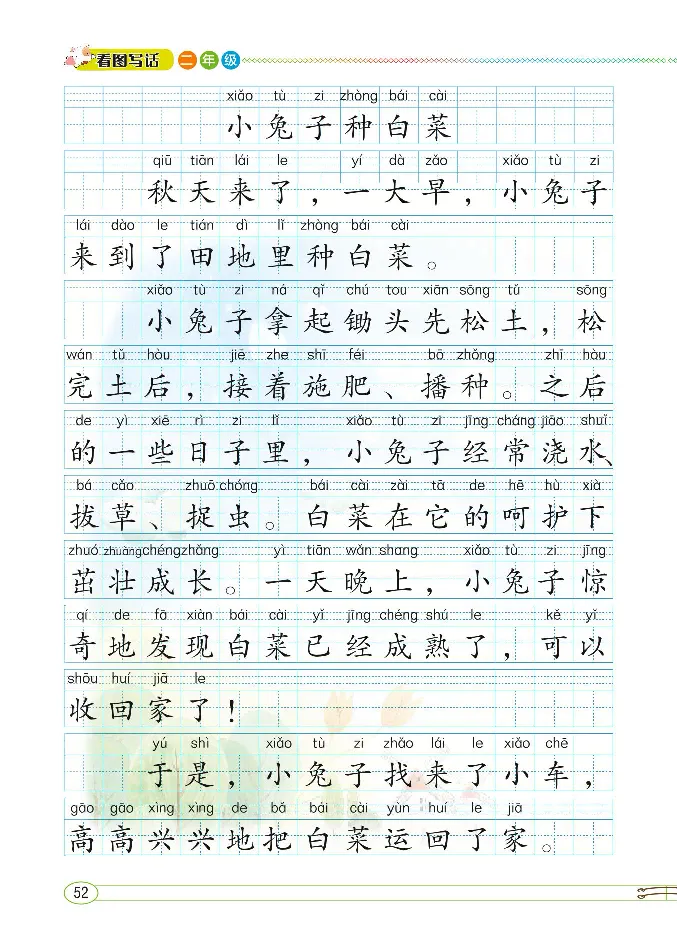 看图写话 二年级
xiǎo tù zi zhòng bái cài
小兔子种白菜
qiū tiān lái le yí dà zǎo xiǎo tù zi
秋天来了，一大早，小兔子
lái dào le tián dì lǐ zhòng bái cài
来到了田地里种白菜。
xiǎo tù zi ná qǐ chú tou xiān sōng tǔ sōng
小兔子拿起锄头先松土，松
wán tǔ hòu jiē zhe shī féi bō zhǒng zhī hòu
完土后，接着施肥、播种。之后
de yì xiē rì zi lǐ xiǎo tù zi jīng cháng jiāo shuǐ
的一些日子里，小兔子经常浇水、
bá cǎo zhuō chóng bái cài zài tā de hē hù xià
拔草、捉虫。白菜在它的呵护下
zhuó zhuàng chéng zhǎng yì tiān wǎn shang xiǎo tù zi jīng
茁壮成长。一天晚上，小兔子惊
qí de fā xiàn bái cài yǐ jīng chéng shú le kě yǐ
奇地发现白菜已经成熟了，可以
shōu huí jiā le
收回家了！
yú shì xiǎo tù zi zhǎo lái le xiǎo chē
于是，小兔子找来了小车，
gāo gāo xìng xìng de bǎ bái cài yùn huí le jiā
高高兴兴地把白菜运回了家。
52